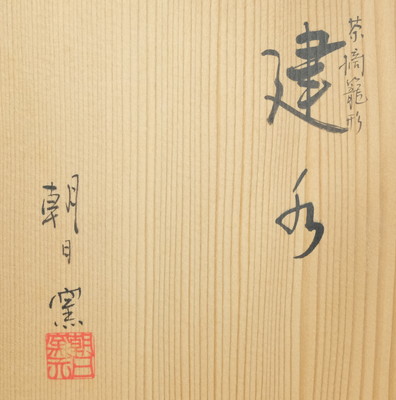 茶摘籠形
建水
朝日窯
朝日窯